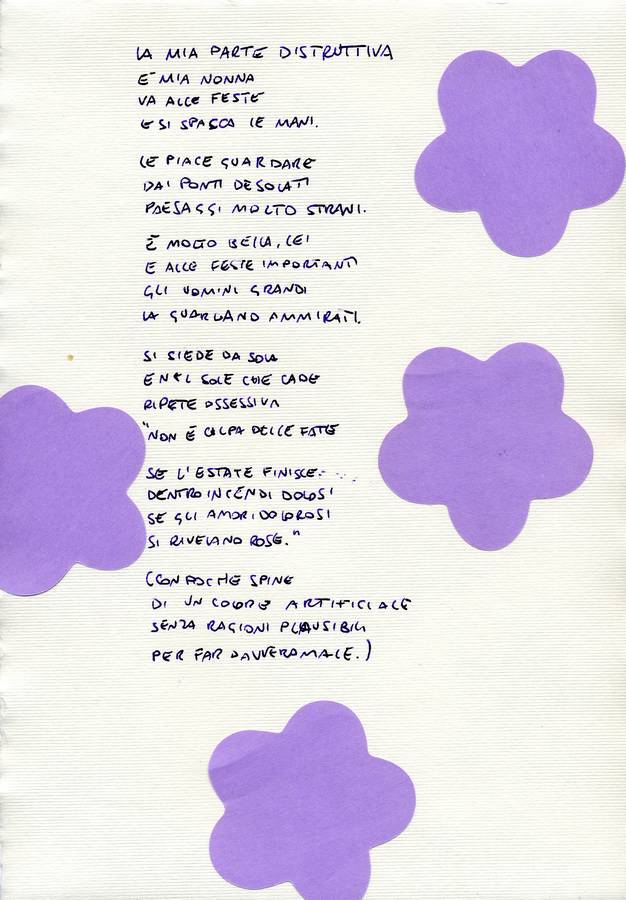 LA MIA PARTE DISTRUTTIVA
E' MIA NONNA
VA ALLE FESTE
E SI SPACCA LE MANI.
LE PIACE GUARDARE
DAI PONTI DESOLATI
PAESAGGI MOLTO STRANI.
È MOLTO BELLA, LEI
E ALLE FESTE IMPORTANTI
GLI UOMINI GRANDI
LA GUARDANO AMMIRATI.
SI SIEDE DA SOLA
E NEL SOLE CHE CADE
RIPETE OSSESSIVA
"NON È COLPA DELLE FATE
SE L'ESTATE FINISCE
DENTRO INCENDI DOLOSI
SE GLI AMORI DOLOROSI
SI RIVELANO ROSE."
(CON POCHE SPINE
DI UN COLORE ARTIFICIALE
SENZA RAGIONI PLAUSIBILI
PER FAR DAVVERO MALE.)